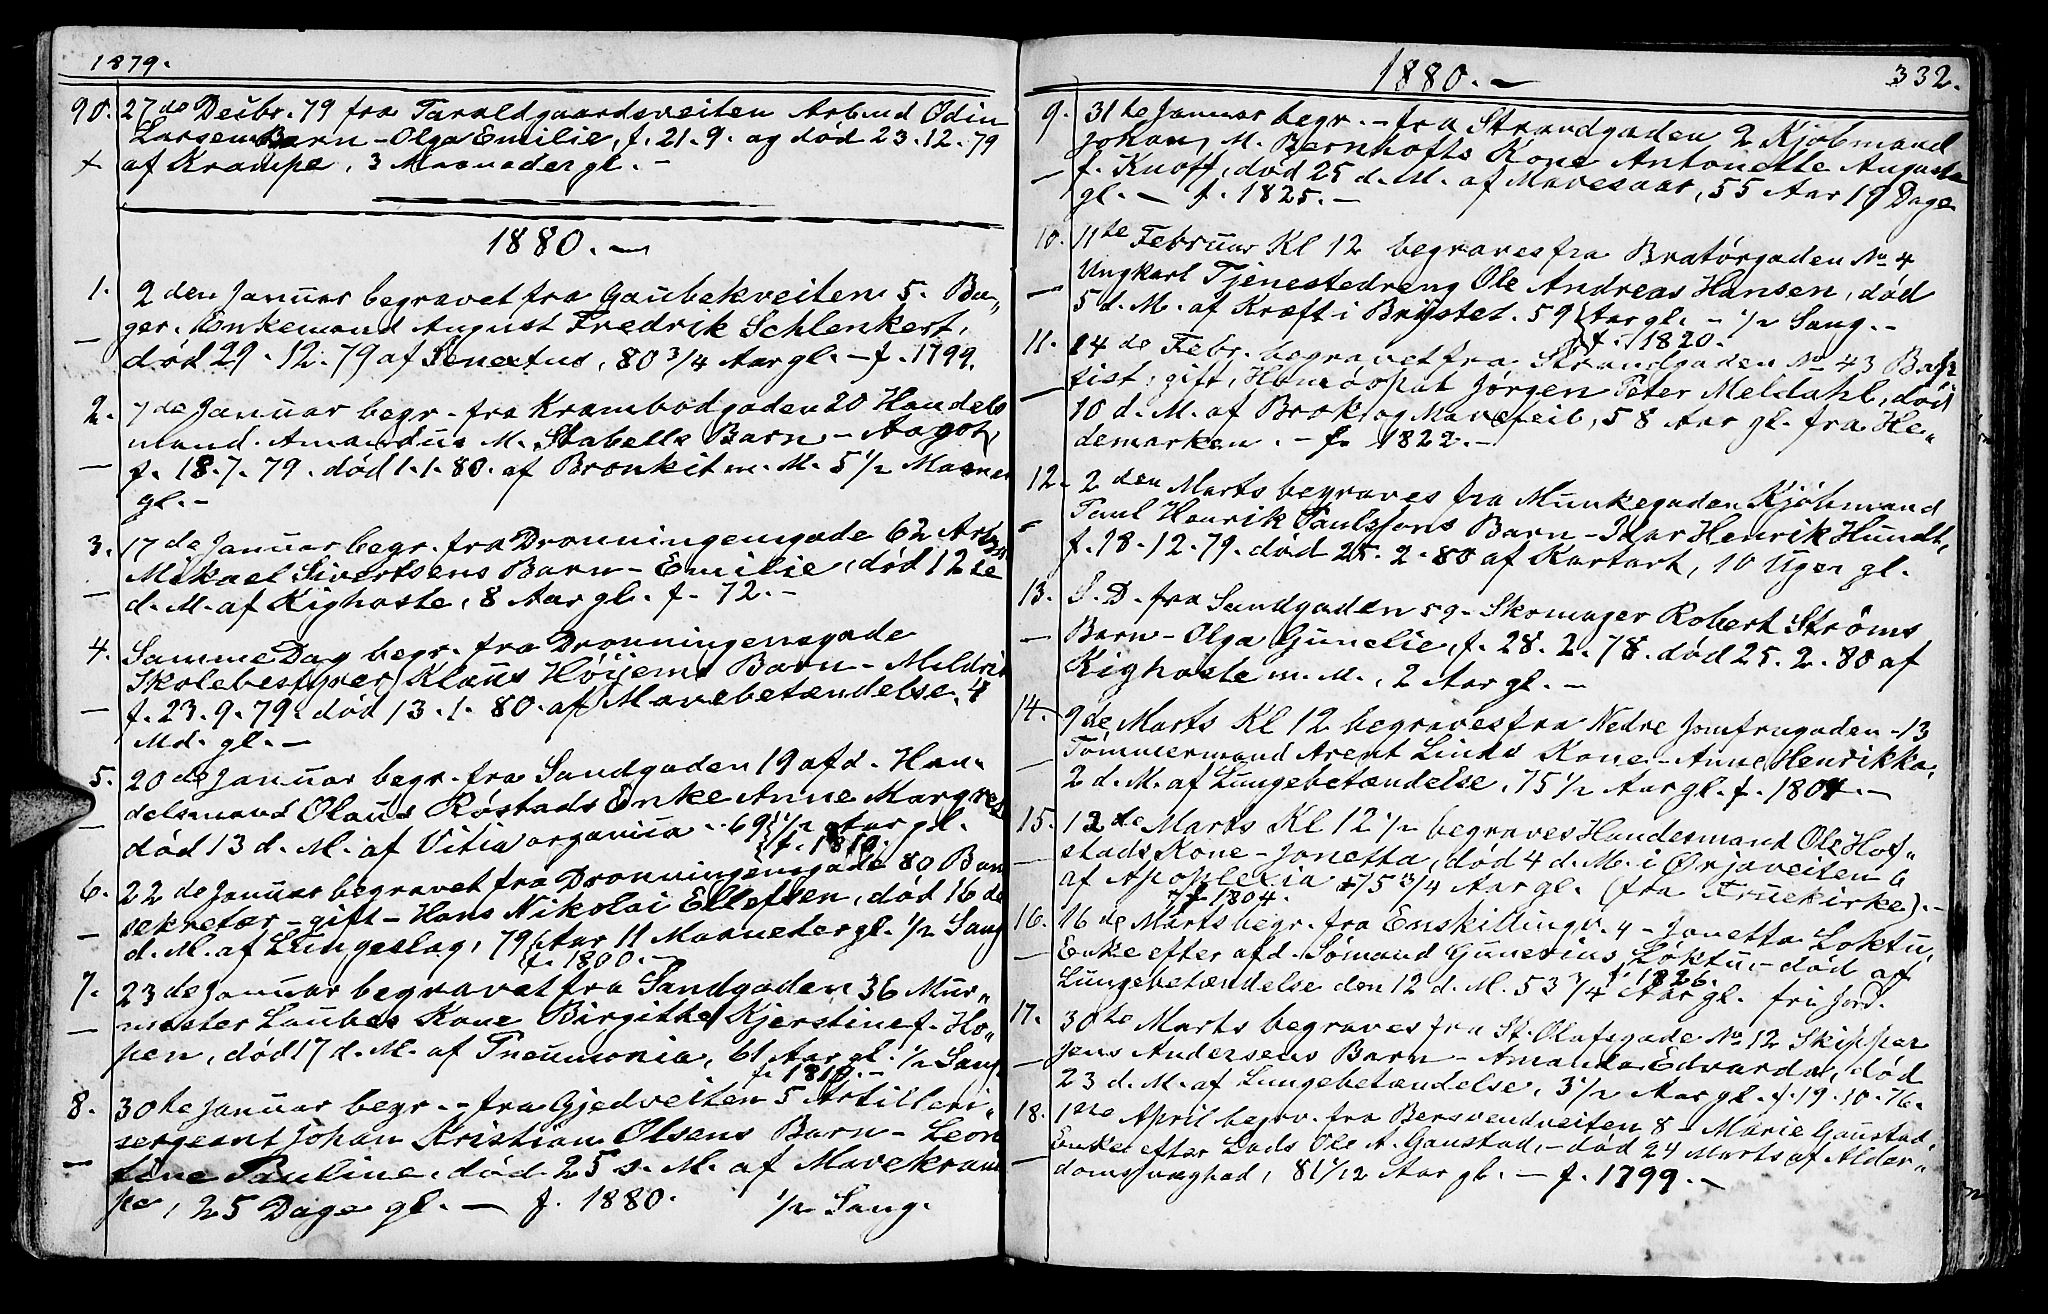 1879.
90. 27de Decbr. 79 fra Taraldgaardsveiten Arbmd Odin
Larsens Barn - Olga Emilie, f. 21.9. og død 23.12.79
+ af Krampe, 3 Maaneder gl. -
1880. -
1. 2den Januar begravet fra Gaubekveiten 5. Ba„
ger. Enkemand August Fredrik Schlenkert,
- død 29.12.79 af Senectus, 80 3/4 Aar gl. - f. 1799.
2. 7de Januar begr. fra Krambodgaden 20 Handels
mand. Amandus M. Stabells Barn - Aagot,
- f. 18.7.79. død 1.1.80. af Bronkit m. M. 5 1/2 Maaned
gl. -
3. 17de Januar begr. fra Dronningensgade 62 Arbm
Mikael Sivertsens Barn - Emilie, død 12te
- d. M. af Kighoste, 8 Aar gl. f. 72. -
4. Samme Dag begr. fra Dronningensgade
Skolebestyrer Klaus Høyems Barn - Mildrid
- f. 23.9.79. død 13.1.80. af Mavebetændelse, 4
Md. gl. -
5. 20de Januar begr. fra Sandgaden 19 afd. Han„
delsmand Olaus Røstads Enke Anne Margret
- død 13 d. M. af Vitia organica - 69 1/2 Aar gl.
f. 1810.
6. 22de Januar begravet fra Dronningensgade 80 Ban
sekretær - gift - Hans Nikolai Ellefsen, død 16de
- d. M. af Lungeslag, 79 Aar 11 Maaneder gl. 1/2 Sang
f. 1800. -
7. 23de Januar begravet fra Sandgaden 36 Mur„
- mester Laubes Kone Birgitha Kjerstine f. Ho„
pen, død 17 d. M. af Pneumonia, 61 Aar gl. 1/2 Sang
f. 1819. -
8. 30te Januar begr. - fra Gjedveiten 5 Artilleri„
sergeant Johan Kristian Olsens Barn - Leon
- tine Pauline, død 25 s. M. af Mavekram
pe, 25 Dage gl. - f. 1880. 1/2 Sang.
1880. - 332.
9. 31te Januar begr. - fra Strandgaden 2 Kjøbmand
Johan M. Bernhofts Kone Antonette Augusta
- f. Knoff, død 25 d. M. af Mavesaar, 55 Aar 19 Dage
gl. - f. 1825. -
10. 11te Februar Kl 12 begraves fra Bratørgaden No 4
Ungkarl Tjenestedreng Ole Andreas Hansen, død
- 5 d. M. af Kræft i Brystet. 59 Aar gl. - 1/2 Sang. -
f. 1820.
11. 14de Febr. begravet fra Strandgaden No 43 Bap
tist, gift, Homöopat Jørgen Peter Meldahl, død
- 10 d. M. af Brok og Mavefeil, 58 Aar gl. fra He„
demarken. - f. 1822. -
12. 2den Marts begraves fra Munkegaden Kjøbmand
Paul Henrik Paulssons Barn - Ivar Henrik Hundt,
- f. 18.12.79. død 25.2.80 af Kartart, 10 Uger gl.
13. S. D. fra Sandgaden 59 - Skomager Robert Strøms
- Barn - Olga Gunelie, f. 28.2.78. død 25.2.80 af
Kighoste m. M., 2 Aar gl. -
14. 9de Marts Kl 12 begraves fra Nedre Jomfrugaden 13
Tømmermand Arent Linds Kone - Anne Henrikka,
- 2 d. M. af Lungebetændelse, 75 1/2 Aar gl. f. 1804. -
15. 12de Marts Kl 12 1/2 begraves Handesmand Ole Hof„
stads Kone - Jonetta, død 4 d. M. i Ørjaveiten 6
- af Apoplexia 75 3/4 Aar gl. (fra Fruekirke). -
f. 1804.
16. 16de Marts begr. fra Enskillingv. 4 - Jonetta Loktu,
- Enke efter afd. Sømand Gunerius Løktu, - død af
Lungebetændelse den 12 d. M. 53 3/4 Aar gl. fri Jord.
f. 1826.
17. 30te Marts begraves fra St. Olafsgade No 12 Skipper
- Jens Andersens Barn - Amanda Edvarda, død
23 d. M. af Lungebetændelse, 3 1/2 Aar gl. f. 19.10.76.
18. 1ste April begrv. fra Bersvendveiten 8 - Marie Gaustad,
- Enke efter Lods Ole A. Gaustad, - død 24 Marts af Alder„
domssvaghed, 81 1/12 Aar gl. - f. 1799. -